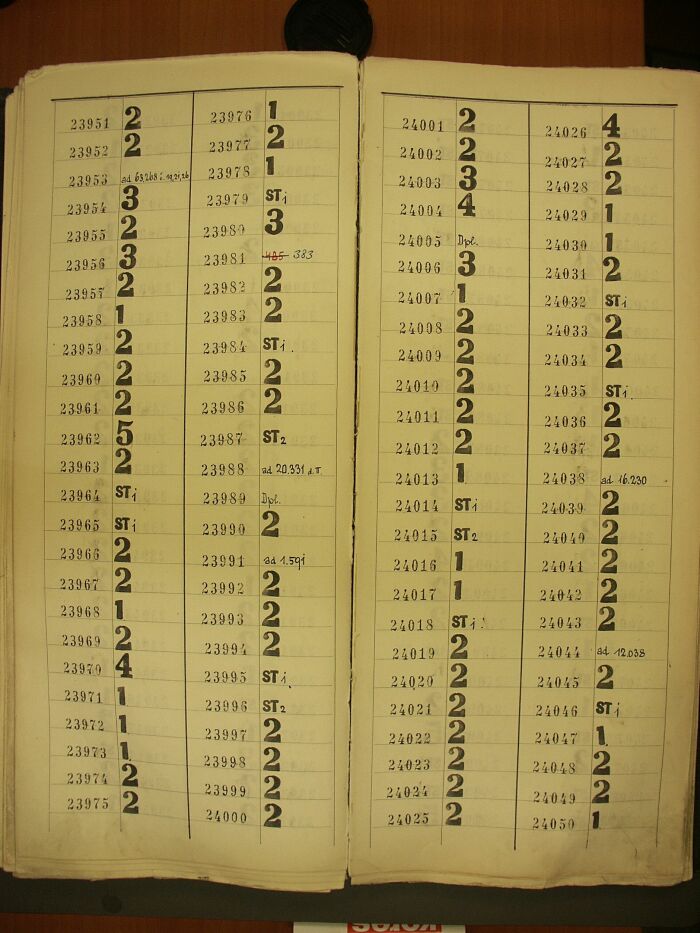 23951 2
23952 2
23953 ad 63,268 i. 19,21,26
23954 3
23955 2
23956 3
23957 2
23958 1
23959 2
23960 2
23961 2
23962 5
23963 2
23964 ST1
23965 ST1
23966 2
23967 2
23968 1
23969 2
23970 4
23971 1
23972 1
23973 1.
23974 2
23975 2
23976 1
23977 2
23978 1
23979 ST1
23980 3
23981 485 383
23982 2
23983 2
23984 ST1.
23985 2
23986 2
23987 ST2
23988 ad 20.331 d.T.
23989 Dpl.
23990 2
23991 ad 1.591
23992 2
23993 2
23994 2
23995 ST1
23996 ST2
23997 2
23998 2
23999 2
24000 2
24001 2
24002 2
24003 3
24004 4
24005 Dpl.
24006 3
24007 1
24008 2
24009 2
24010 2
24011 2
24012 2
24013 1.
24014 ST1
24015 ST2
24016 1
24017 1
24018 ST1.
24019 2
24020 2
24021 2
24022 2
24023 2
24024 2
24025 2
24026 4
24027 2
24028 2
24029 1
24030 1
24031 2
24032 ST1
24033 2
24034 2
24035 ST1.
24036 2
24037 2
24038 ad 16.230
24039 2
24040 2
24041 2
24042 2
24043 2
24044 ad 12.038
24045 2
24046 ST1
24047 1.
24048 2
24049 2
24050 1